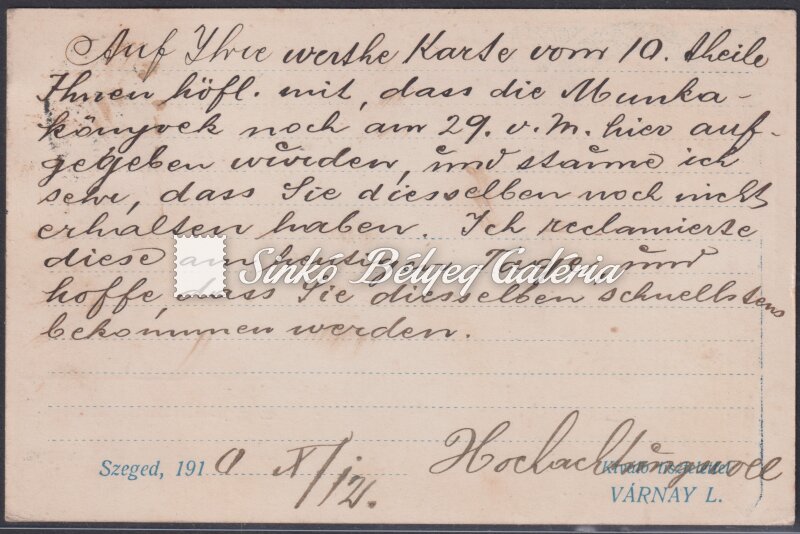 Auf Ihre werthe Karte vom 10. theile
Ihnen höfl. mit, dass die Munka-
könyvek noch am 29. v. M. hier auf-
gegeben wurden, und staune ich
sehr, dass Sie diesselben noch nicht
erhalten haben. Ich reclamierte
diese am heutigen Tage und
Sinkó Bélyeg Galéria
hoffe, dass Sie diesselben schnellstens
bekommen werden.
Szeged, 1910 X/12.
Hochachtungsvoll
Kiváló tisztelettel
VÁRNAY L.